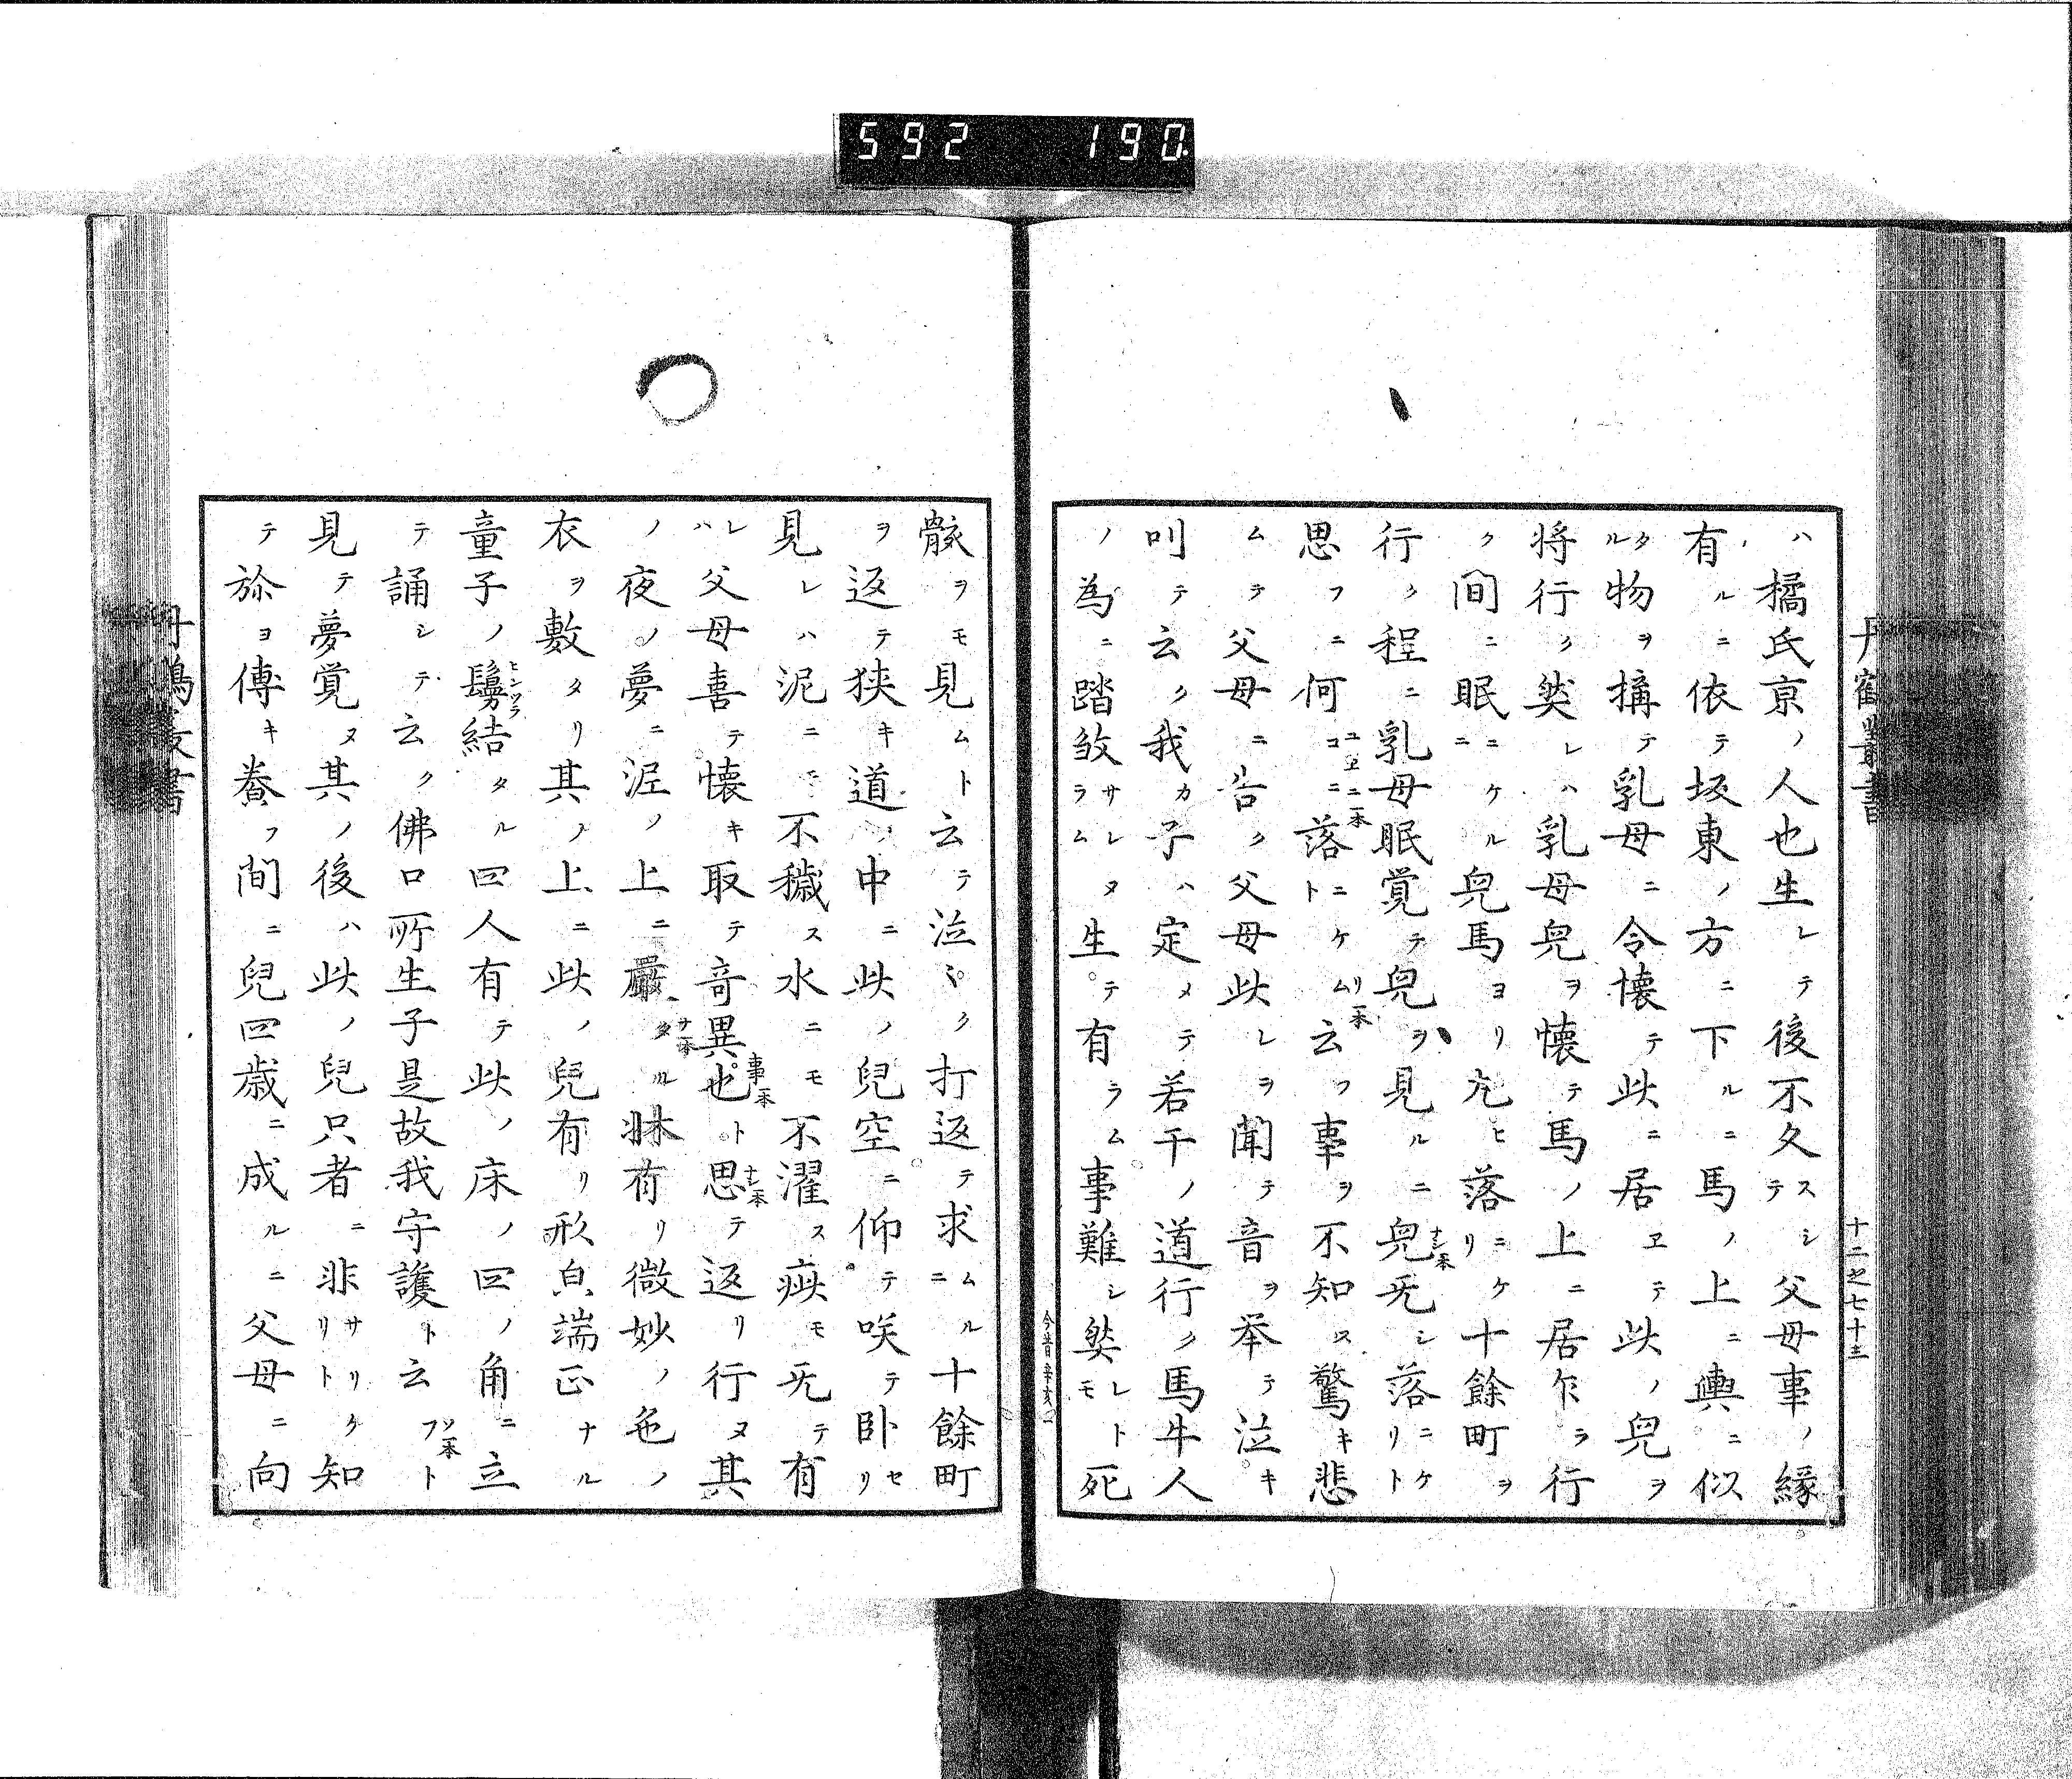 592 190
丹鶴叢書
十二之七十三
ハ橘氏京ノ人也生レテ後不久スシテ父母事ノ縁
有ルニ依テ坂東ノ方ニ下ルニ馬ノ上ニ輿ニ似
タル物ヲ構テ乳母ニ令懐テ此ニ居ヱテ此ノ兒ヲ
将行ク然レハ乳母兒ヲ懐テ馬ノ上ニ居乍ラ行
ク間ニ眠ニケル兒馬ヨリ尢ヒ落ニケリ十餘町ヲ
行ク程ニ乳母眠覚テ兒ヲ見ルニ兒ナシ一本旡シ落ニケリト
思フニ何コニユヱニ一本落ニケムリ一本ト云フ事ヲ不知ス驚キ悲
ムテ父母ニ告ク父母此レヲ聞テ音ヲ挙テ泣キ
叫テ云ク我カ子ハ定メテ若干ノ道行ク馬牛人
ノ為ニ踏敜サレヌラム生テ有ラム事難シ然レトモ死
今昔
骸ヲモ見ムト云テ泣ミク打返テ求ムルニ十餘町
ヲ返テ狭キ道ノ中ニ此ノ兒空ニ仰テ咲テ卧セリ
見レハ泥ニモ不穢ス水ニモ不濯ス疵モ旡テ有
レハ父母喜テ懐キ取テ奇異也事一本ト思ナシ一本テ返リ行ヌ其
ノ夜ノ夢ニ泥ノ上ニ嚴タサ一本ル牀有リ微妙ノ色ノ
衣ヲ敷タリ其ノ上ニ此ノ兒有リ形皃端正ナル
童子ノ鬘ヒンツラ結タル四人有テ此ノ床ノ四ノ角ニ立
テ誦シテ云ク佛口所生子是故我守護ト云フソ一本ト
見テ夢覚ヌ其ノ後ハ此ノ兒只者ニ非サリケリト知
テ弥ヨ傳キ養フ間ニ兒四歳ニ成ルニ父母ニ向